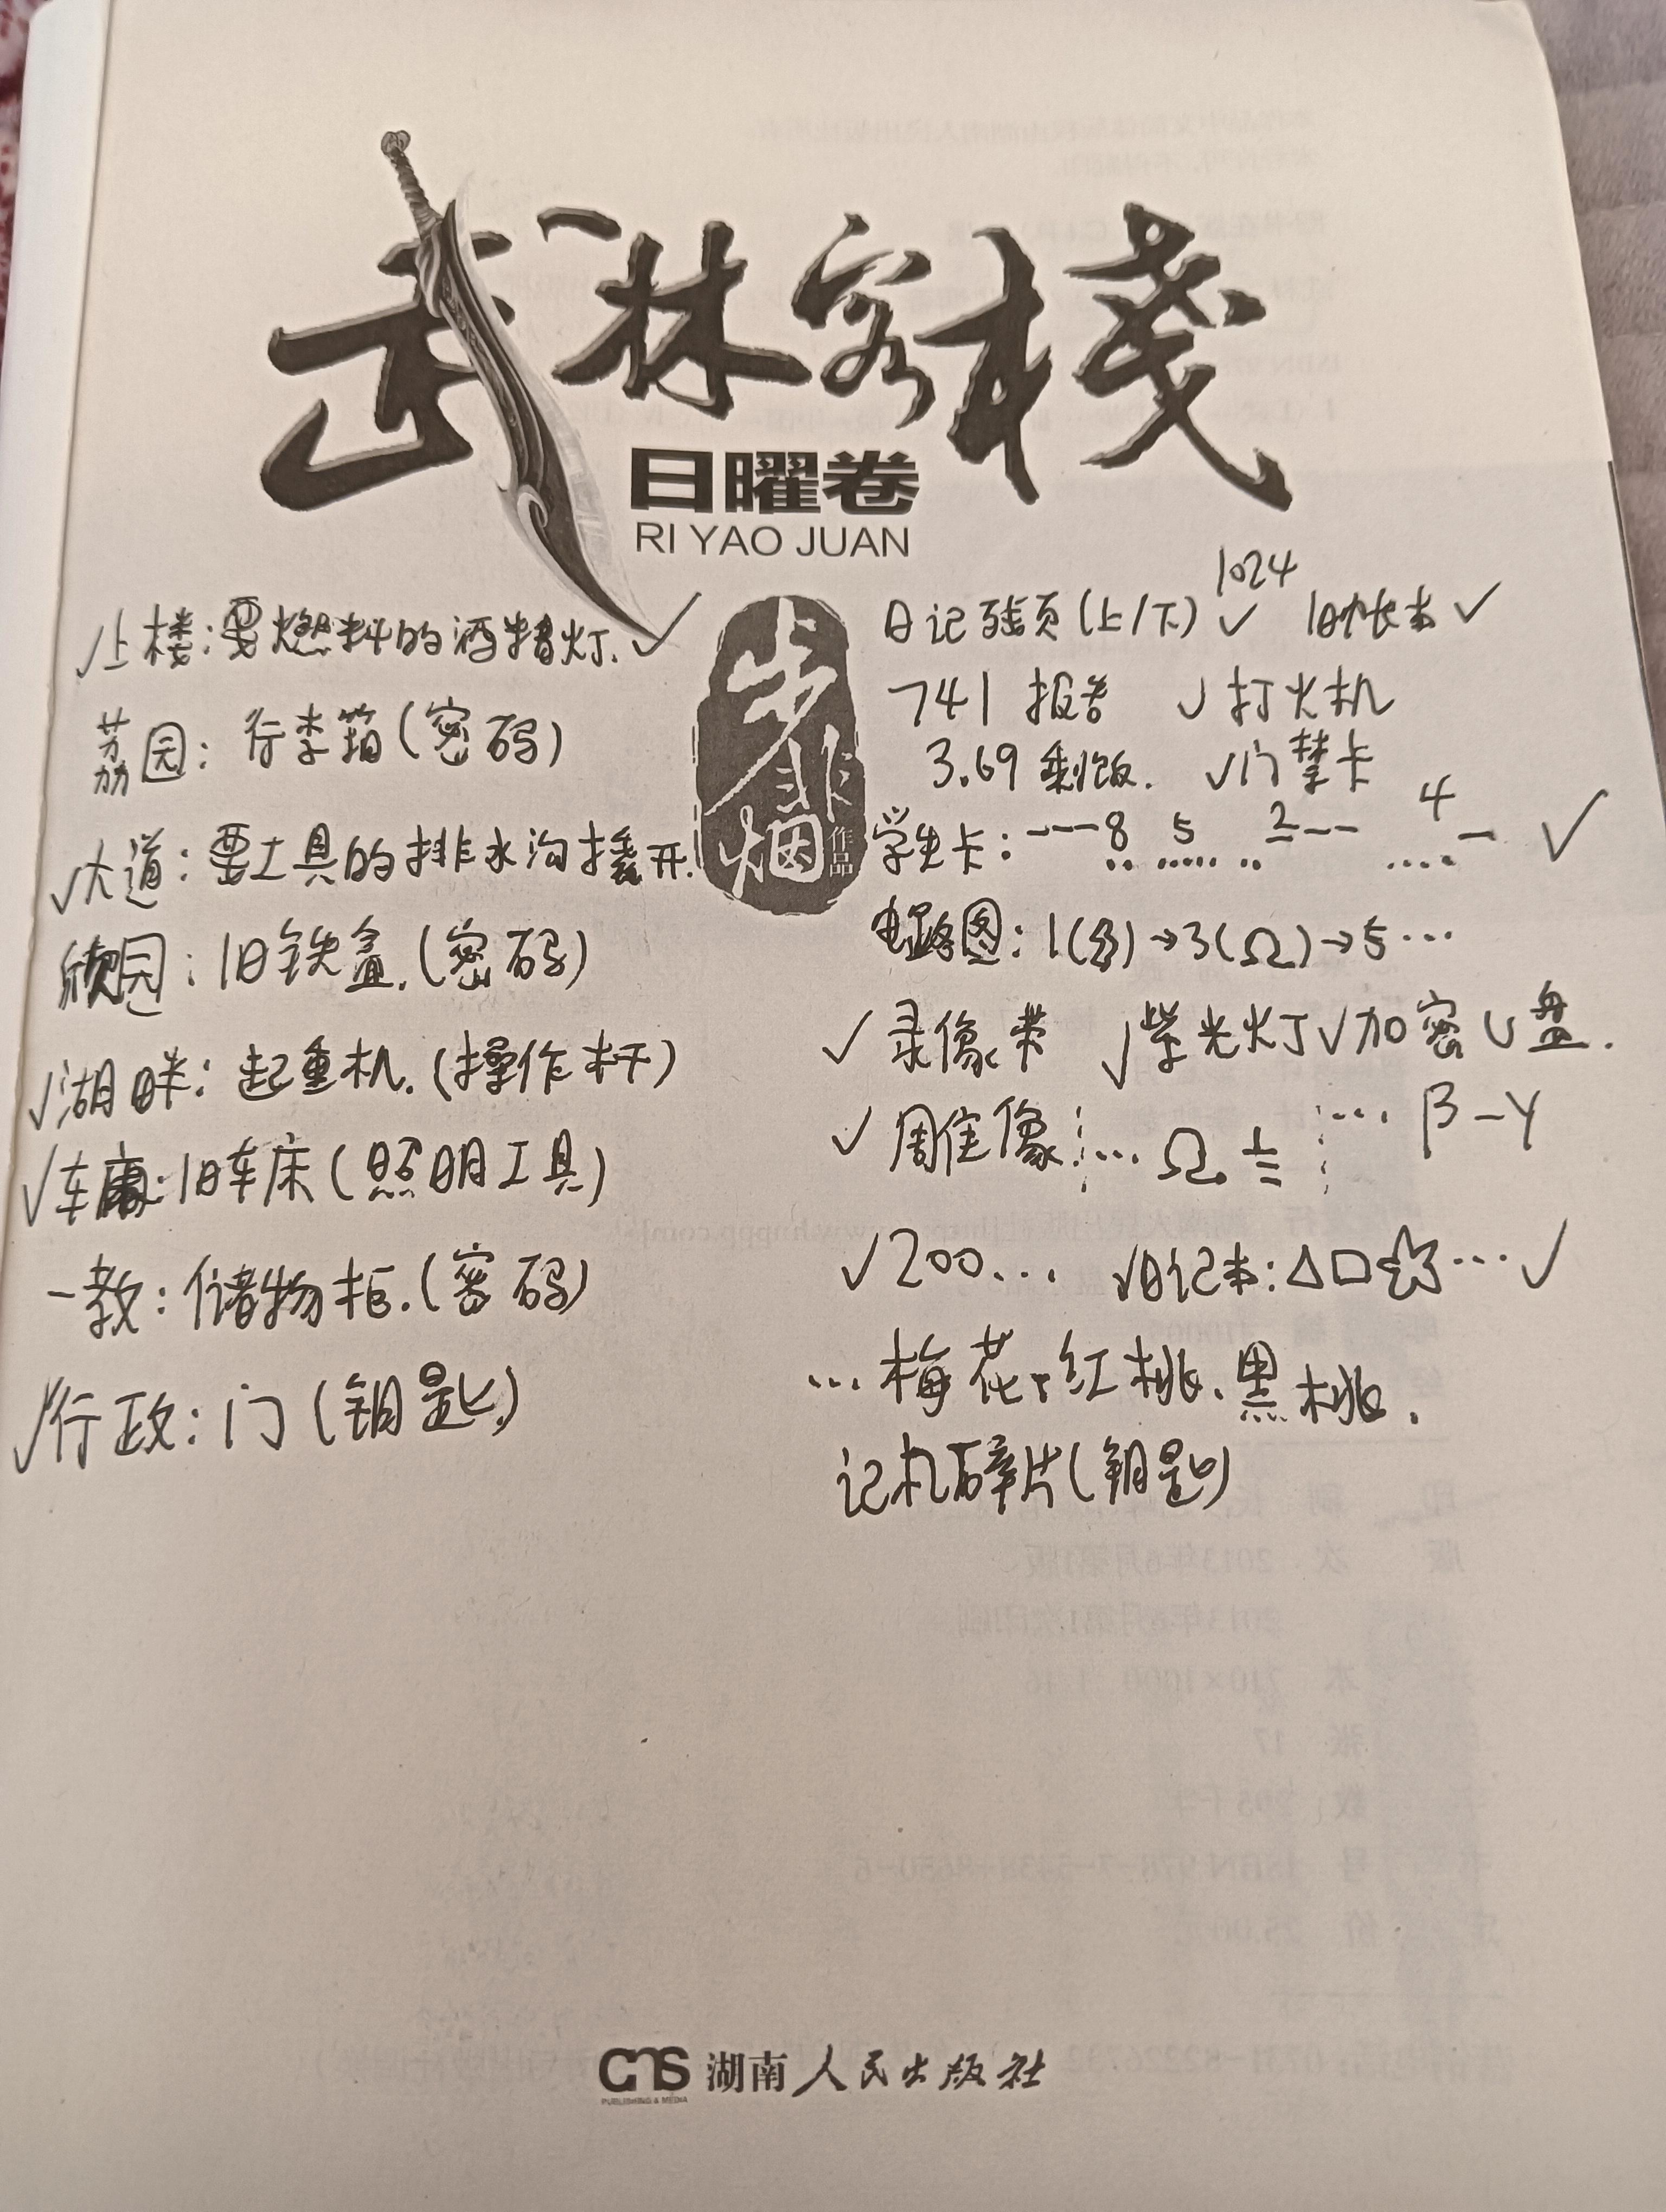 武林客栈
日曜卷
RI YAO JUAN
步非烟
作品
✓上楼:要燃料的酒精灯.✓
荔园:行李箱(密码)
✓大道:要工具的排水沟撬开.
颐园:旧铁盒.(密码)
✓湖畔:起重机.(操作杆)
✓车库:旧车床(照明工具)
一教:储物柜.(密码)
✓行政:门(钥匙)
1024
日记残页(上/下)✓ 旧帐本✓
741 报告 ✓打火机
3.69 剩饭. ✓门禁卡
学生卡:---8 5 2-- 4- ✓
电路图:1()→3(Ω)→5…
✓录像带 ✓紫光灯✓加密U盘.
✓周隹像 … Ω. … β-γ
✓200… ✓日记本:△□☆…✓
…梅花.红桃.黑桃.
记机碎片(钥匙)
CNS 湖南人民出版社
PUBLISHING & MEDIA